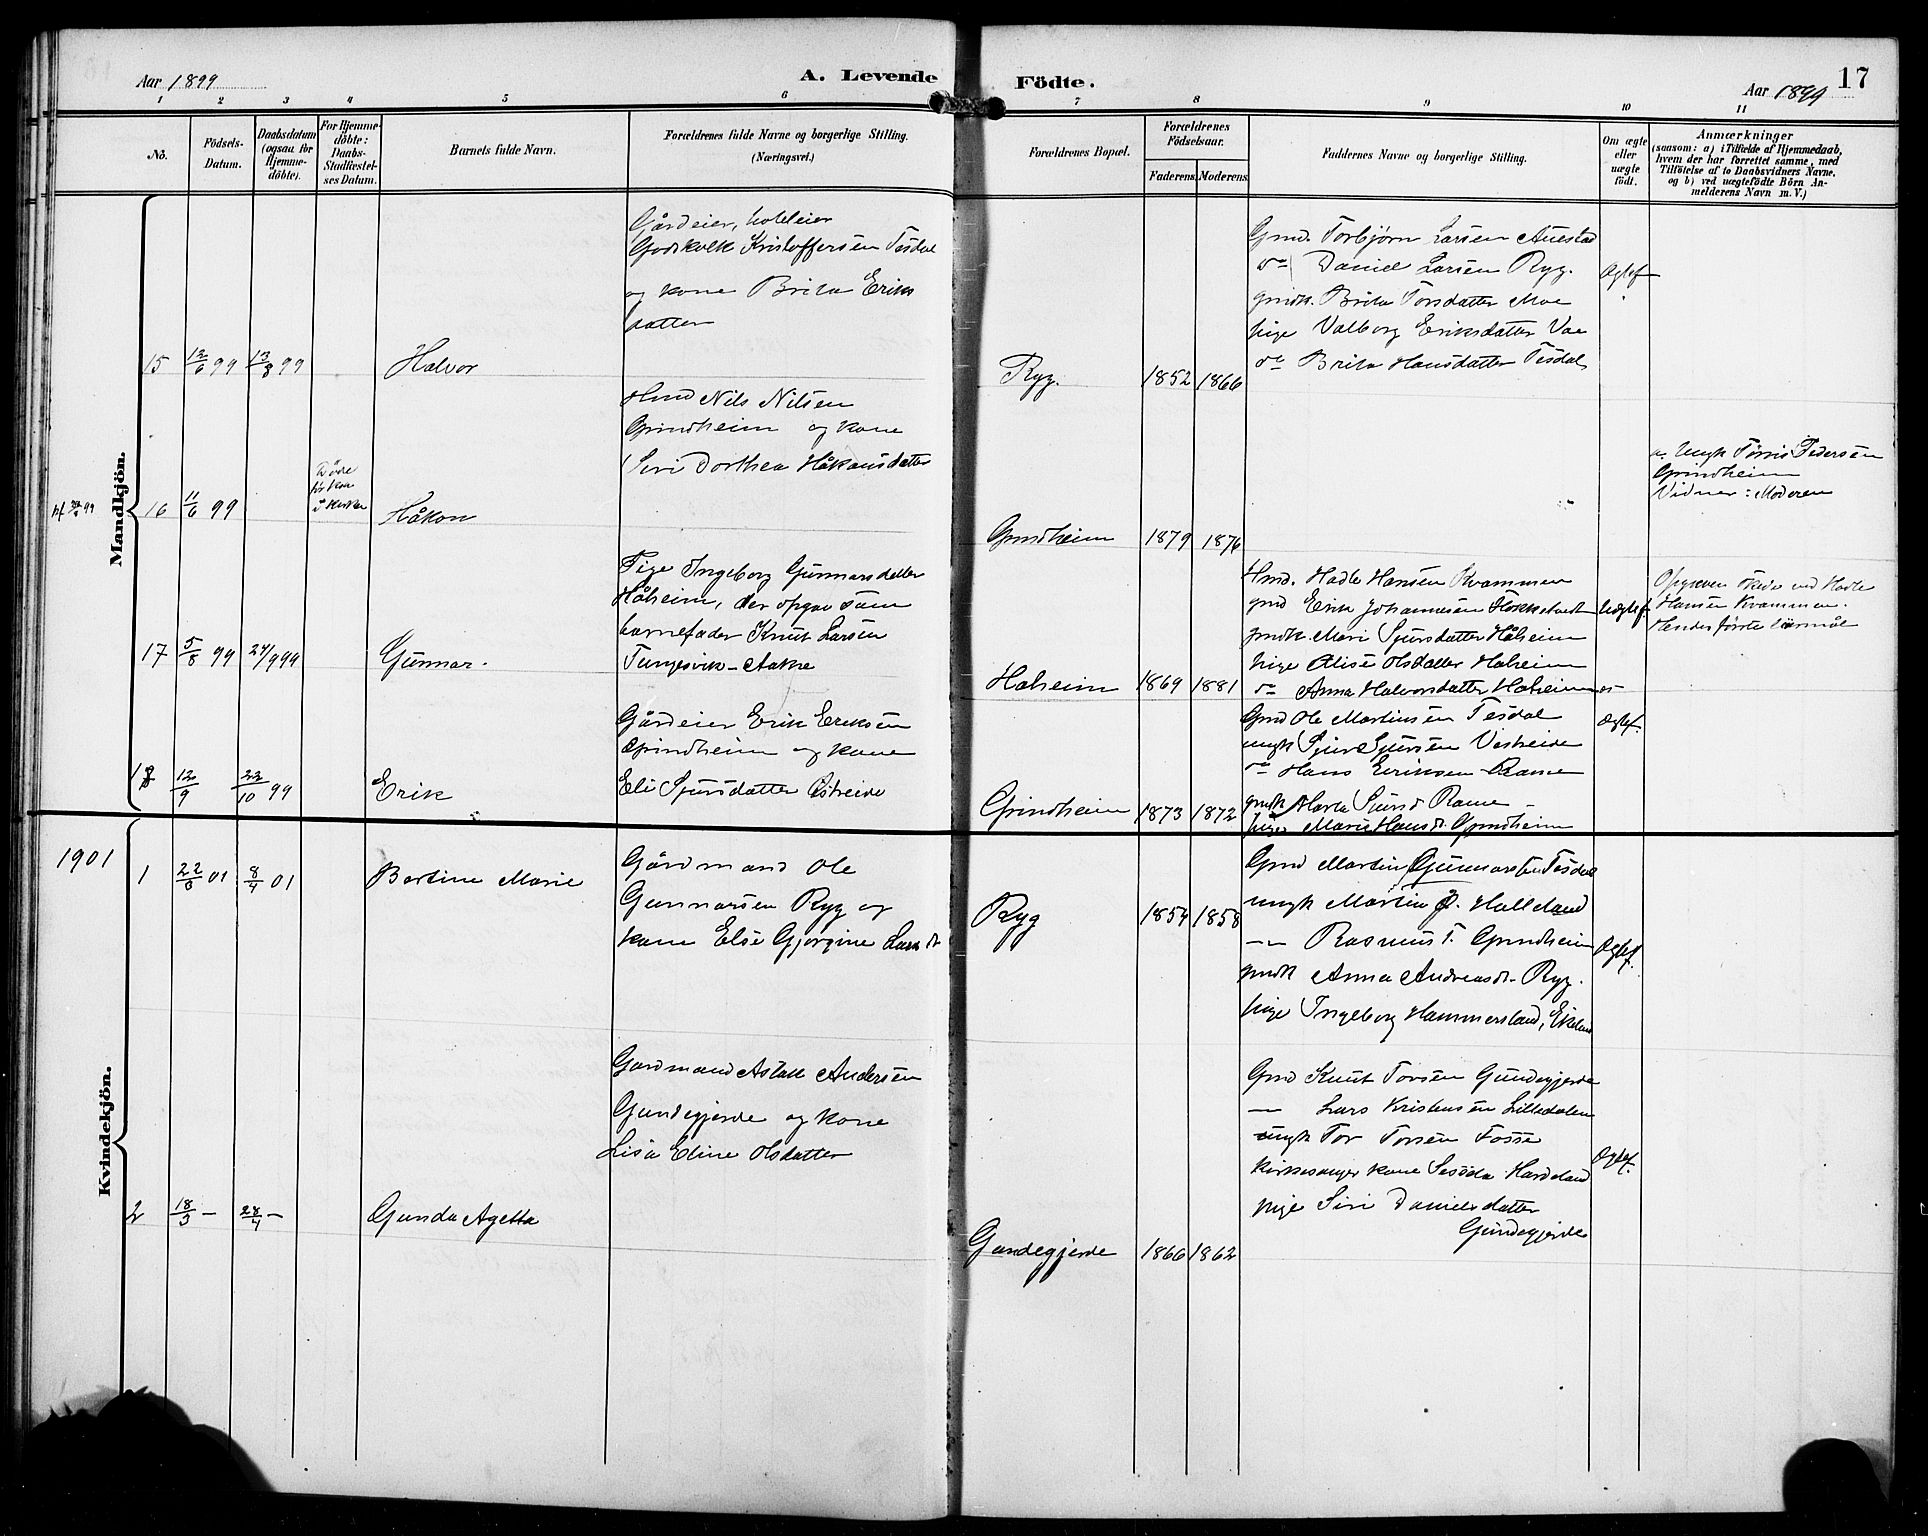 Aar 1899
A. Levende
Födte.
Aar 1899
17
1 2 3 4 5 6 7 8 9 10 11
No.
Födsels-
Datum.
Daabsdatum
(ogsaa for
Hjemme-
döbte).
For Hjemme-
döbte:
Daabs-
Stadfæstel-
ses Datum.
Barnets fulde Navn.
Forældrenes fulde Navne og borgerlige Stilling.
(Næringsvei.)
Forældrenes Bopæl.
Forældrenes
Födselsaar.
Faderens. Moderens.
Faddernes Navne og borgerlige Stilling.
Om ægte
eller
uægte
födt.
Anmærkninger
(saasom: a) i Tilfælde af Hjemmedaab,
hvem der har forrettet samme, med
Tilföielse af to Daabsvidners Navne,
og b) ved uægtefödte Börn An-
melderens Navn m. V.)
Mandkjön.
15 12/6 99 13/8 99
Halvor
Gårdeier, hoteleier
Godskolk Kristoffersen Tesdal
og kone Brita Eriks
datter
Ryg.
1852 1866
Gmd. Torbjørn Larsen Auestad
do Daniel Larsen Ryg.
gmdk. Brita Torsdatter Moe
pige Valborg Eriksdatter Vae
do Brita Hansdatter Tesdal
Ægtef
16 11/6 99
Døde
før den
i kirken
Håkon
Hmd Nils Nilsen
Grindheim og kone
Siri Dorthea Håkonsdatter
Grindheim
1879 1876
a. Ungk Tørris Pedersen
Grindheim
Vidner: Moderen
17 5/8 99 24/9 99
Gunnar.
Pige Ingeborg Gunnarsdatter
Håheim, der opgav som
barnefader Knut Larsen
Tungesvik - Aakre
Haheim
1869 1881
Hmd. Hadle Hansen Kvammen
gmd Erik Johannesen
gmdk. Mari Sjursdatter Håheim
pige Alise Olsdatter Haheim
do Anna Halvorsdatter Haheim
Uægtef.
Opgaven skede ved Hadle
Hansen Kvammen.
Hendes første leiermål
18 12/9 22/10 99
Erik
Gårdeier Erik Eriksen
Grindheim og kone
Eli Sjursdatter Østreide
Grindheim
1873 1872
Gmd Ole Martinsen Tesdal
ungk Sjur Sjursen Vestreide
do Hans Eriksen Rame
gmdk Marta Sjursd Rame
pige Marie Hansd. Grindheim
Ægtef.
1901
Kvindekjön.
1 22/3 01 8/4 01
Bertine Marie
Gårdmand Ole
Gunnarsen Ryg og
kone Else Gjørgine Larsdt
Ryg
1854 1858
Gmd Martin Gunnarsen Tesdal
ungk Martin J. Halleland
— Rasmus T. Grindheim
gmdk Anna Andreasdt. Ryg.
pige Ingeborg Hammersland,
Ægtef.
2 18/3 - 28/4 -
Gunda Agetta
Gardmand Aslak Andersen
Gundegjerde og kone
Lisa Eline Olsdatter
Gundegjerde
1866 1862
Gmd Knut Torsen Gundegjerde
— Lars Kristensen Lilledalen
ungk Tor Torsen Fosse
Kirkesanger kone Hardeland
pige Siri Danielsdatter
Gundegjerde
Ægtef.